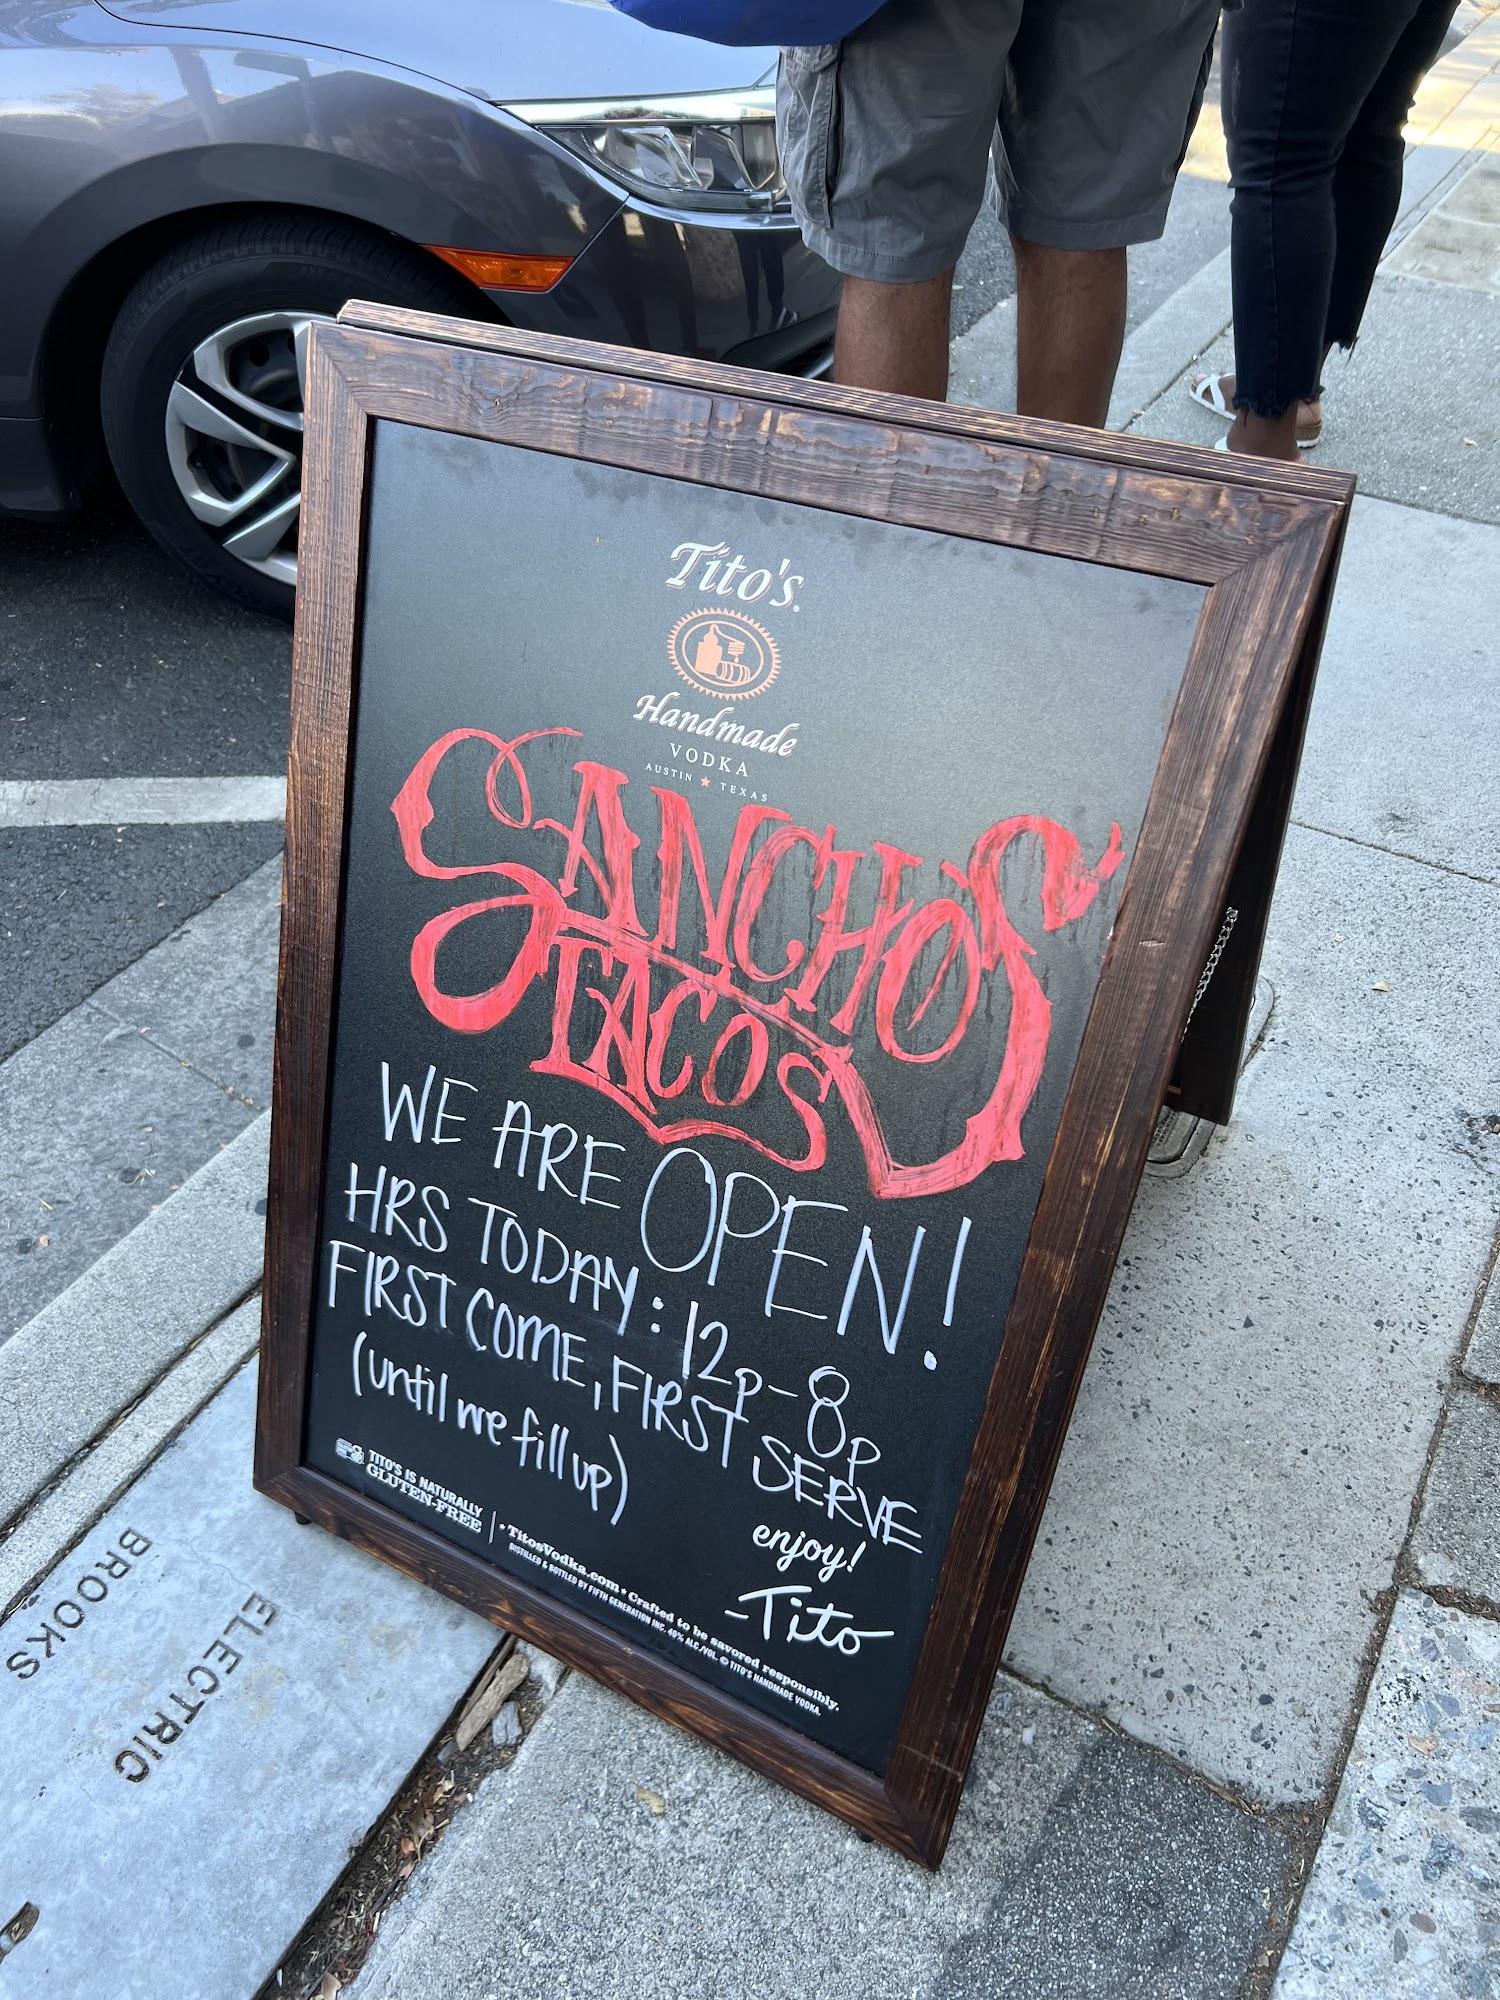 Tito's
Handmade
VODKA
AUSTIN ★ TEXAS
SANCHO'S
TACOS
WE ARE OPEN!
HRS TODAY: 12P-8P
FIRST COME, FIRST SERVE
(until we fill up)
enjoy!
-Tito
TITO'S IS NATURALLY
GLUTEN-FREE
• TitosVodka.com • Crafted to be savored responsibly.
DISTILLED & BOTTLED BY FIFTH GENERATION INC. 40% ALC./VOL. © TITO'S HANDMADE VODKA.
BROOKS
ELECTRIC